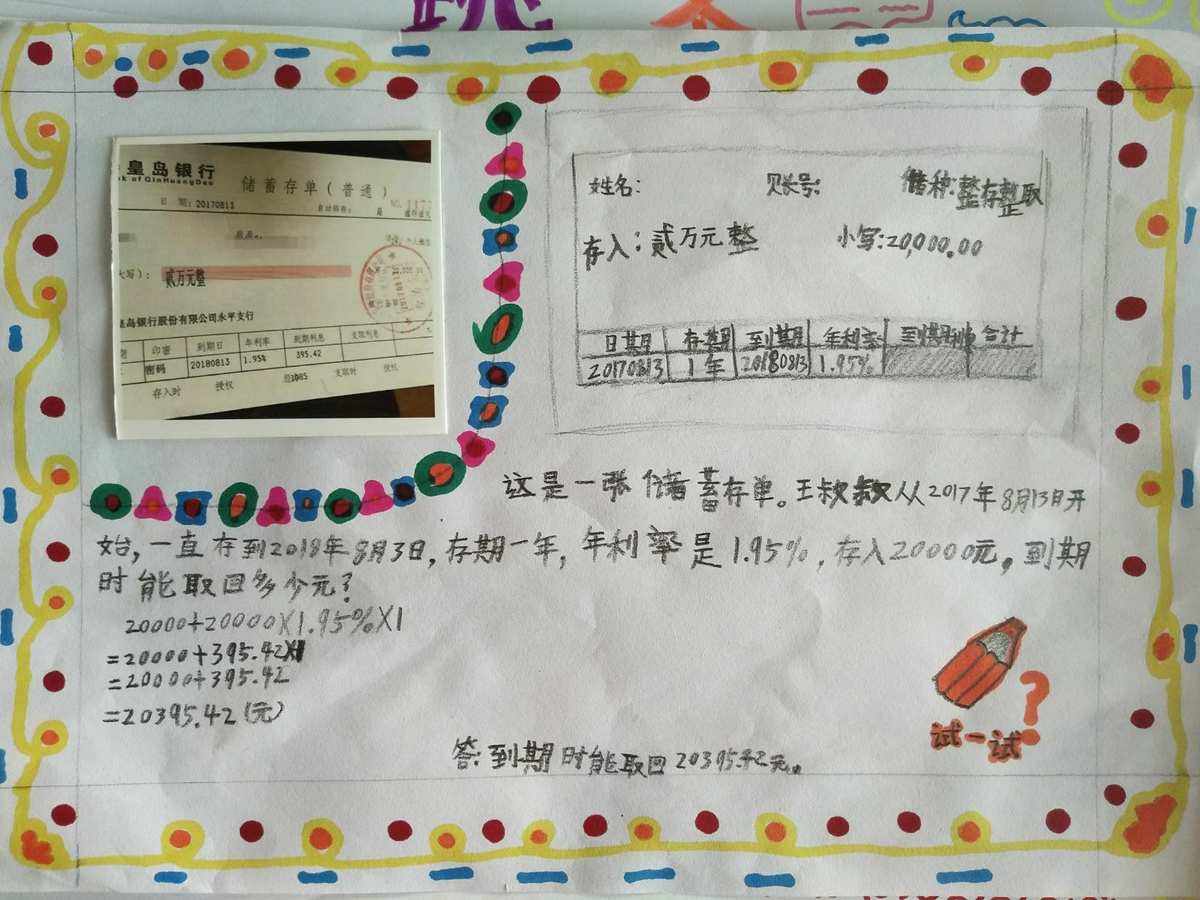 皇岛银行
k of QinHuangDao
储蓄存单(普通)
日 期:20170813
贰万元整
皇岛银行股份有限公司永平支行
印密 到期日 年利率 到期利息 支取利息
密码 20180813 1.95% 395.42
存入时 授权 支取时 授权
姓名: 账号: 储种:整存整取
存入:贰万元整 小写:20,000.00
日期 存期 到期 年利率 到期利息 合计
20170813 1年 20180813 1.95%
这是一张储蓄存单。王叔叔从2017年8月13日开
始,一直存到2018年8月3日,存期一年,年利率是1.95%,存入20000元。到期
时能取回多少元?
20000+20000×1.95%×1
=20000+395.42×1
=20000+395.42
=20395.42(元)
试一试
答:到期时能取回20395.42元。